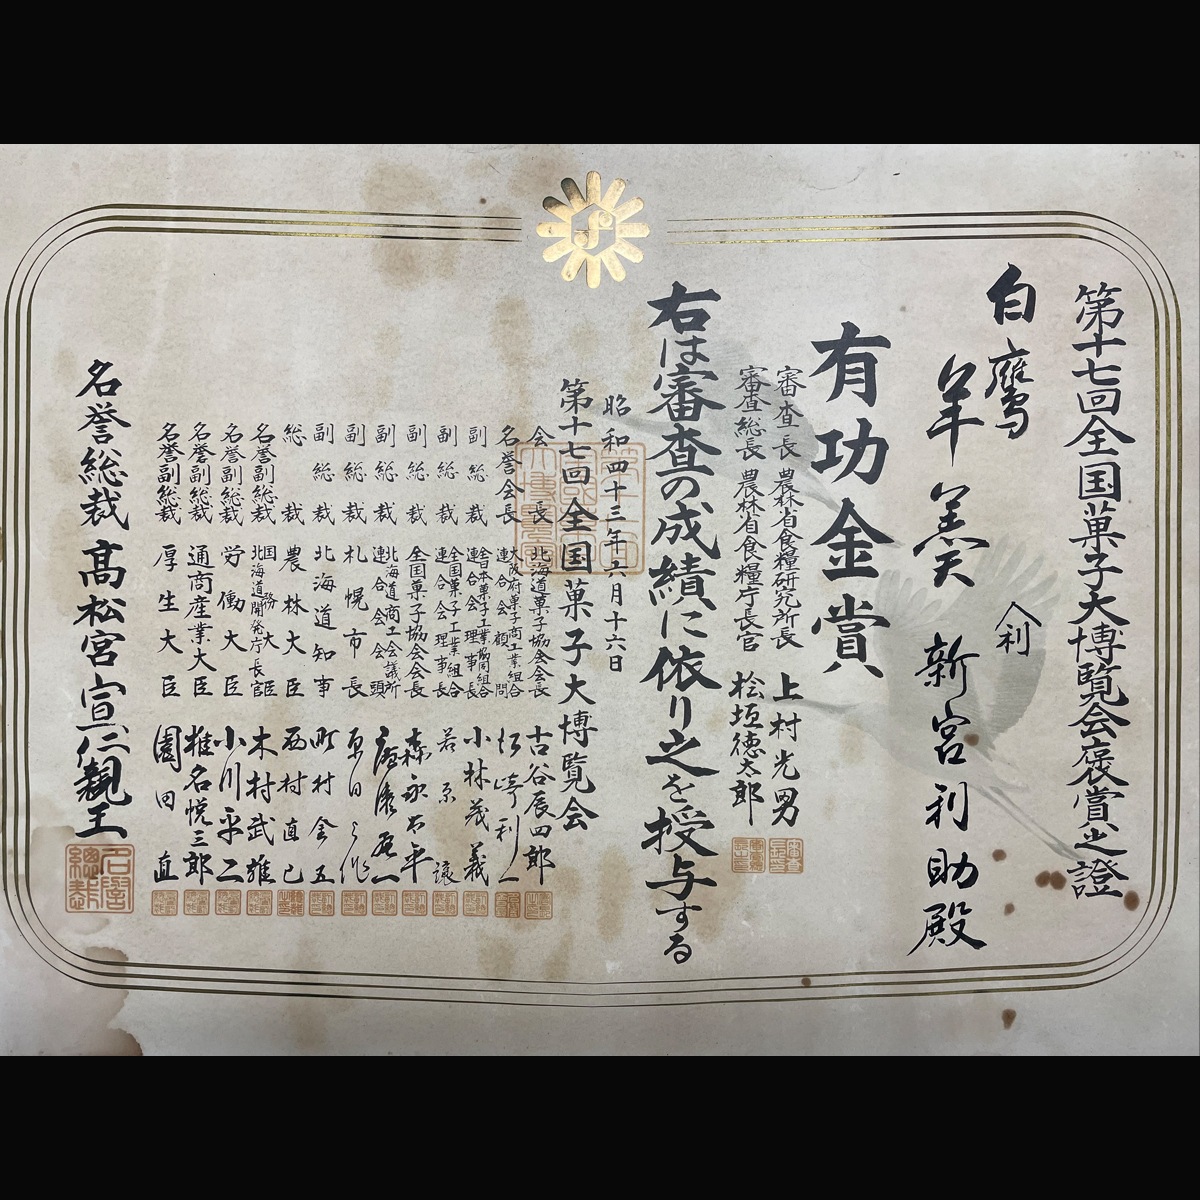 第十七回全国菓子大博覧会褒賞之證
白鷹
羊羹
利
新宮利助殿
有功金賞
審査長 農林省食糧研究所長 上村光男
審査総長 農林省食糧庁長官 桧垣徳太郎
右は審査の成績に依り之を授与する
昭和四十三年六月十六日
第十七回全国菓子大博覧会
会長 北海道菓子協会会長 古谷辰四郎
名誉会長 大阪府菓子商工業組合連合会顧問 利一
副総裁 全日本菓子工業協同組合連合会理事長 小林茂義
副総裁 全国菓子工業組合連合会理事長 若原譲
副総裁 全国菓子協会会長 森永太平
副総裁 北海道商工会議所連合会会頭
副総裁 札幌市長 原田与作
副総裁 北海道知事 町村金五
総裁 農林大臣 西村直己
名誉副総裁 国務大臣 北海道開発庁長官 木村武雄
名誉副総裁 労働大臣 小川平二
名誉副総裁 通商産業大臣 椎名悦三郎
名誉副総裁 厚生大臣 園田直
名誉総裁 高松宮宣仁親王
名誉總裁